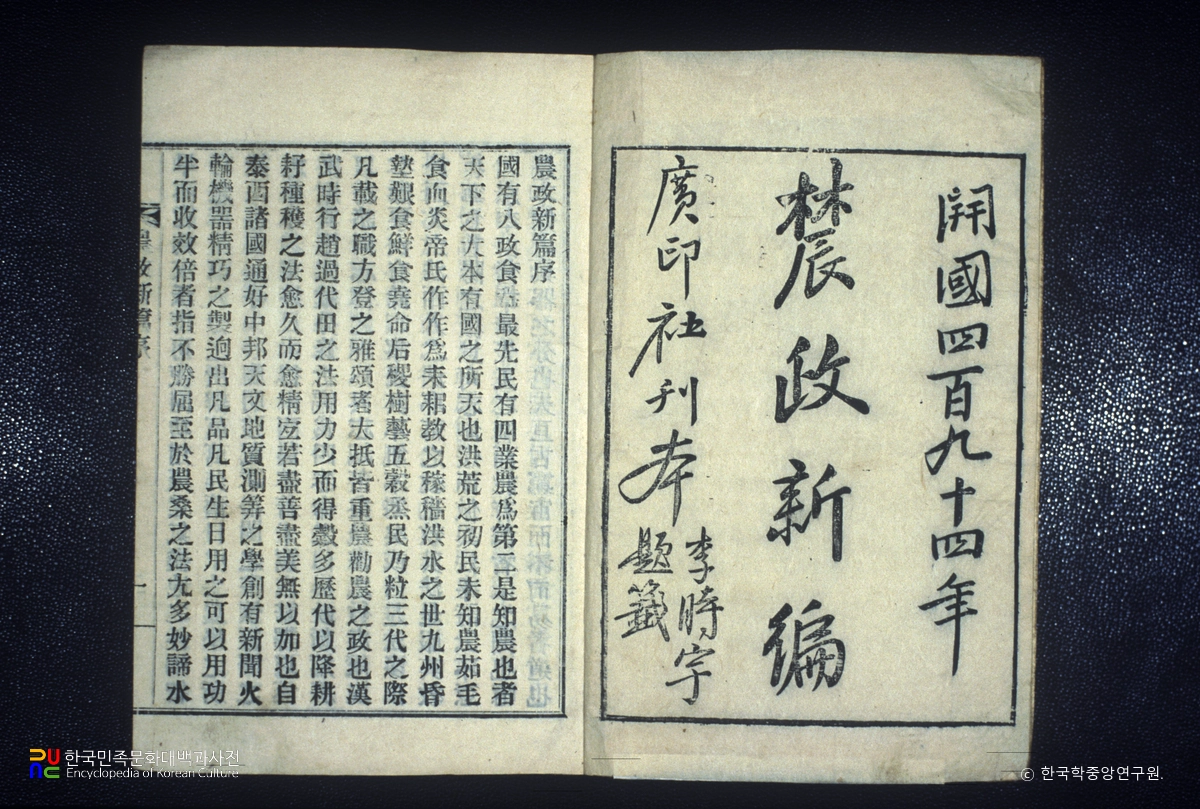 開國四百九十四年
農政新編
廣印社刊本
李時宇
題籤
農政新篇序
國有八政食爲最先民有四業農爲第二是知農也者
天下之大本有國之所天也洪荒之初民未知農茹毛
食血炎帝氏作作爲耒耜教以稼穡洪水之世九州昏
墊艱食鮮食堯命后稷樹藝五穀烝民乃粒三代之際
凡載之職方登之雅頌者大抵皆重農勸農之政也漢
武時行趙過代田之法用力少而得穀多歷代以降耕
耔種穫之法愈久而愈精宜若盡善盡美無以加也自
泰西諸國通好中邦天文地質測筭之學創有新聞火
輪機器精巧之製逈出凡品凡民生日用之可以用功
半而收效倍者指不勝屈至於農桑之法尤多妙諦水
農政新篇序
一
한국민족문화대백과사전
Encyclopedia of Korean Culture
© 한국학중앙연구원.